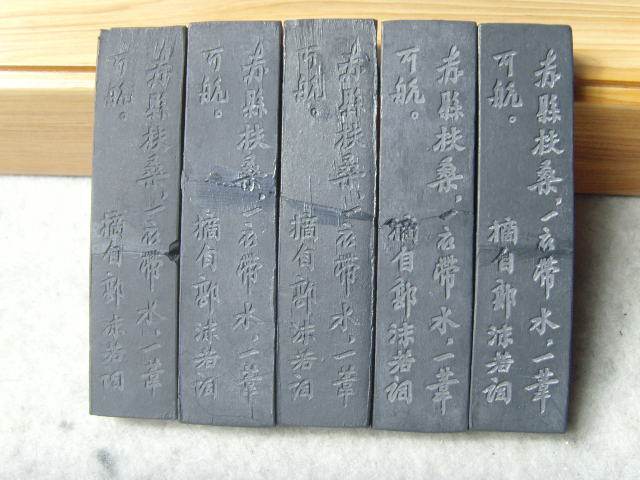 赤縣扶桑，一衣帶水，一葦
可航。 摘自郭沫若詞
赤縣扶桑，一衣帶水，一葦
可航。 摘自郭沫若詞
赤縣扶桑，一衣帶水，一葦
可航。 摘自郭沫若詞
赤縣扶桑，一衣帶水，一葦
可航。 摘自郭沫若詞
赤縣扶桑，一衣帶水，一葦
可航。 摘自郭沫若詞